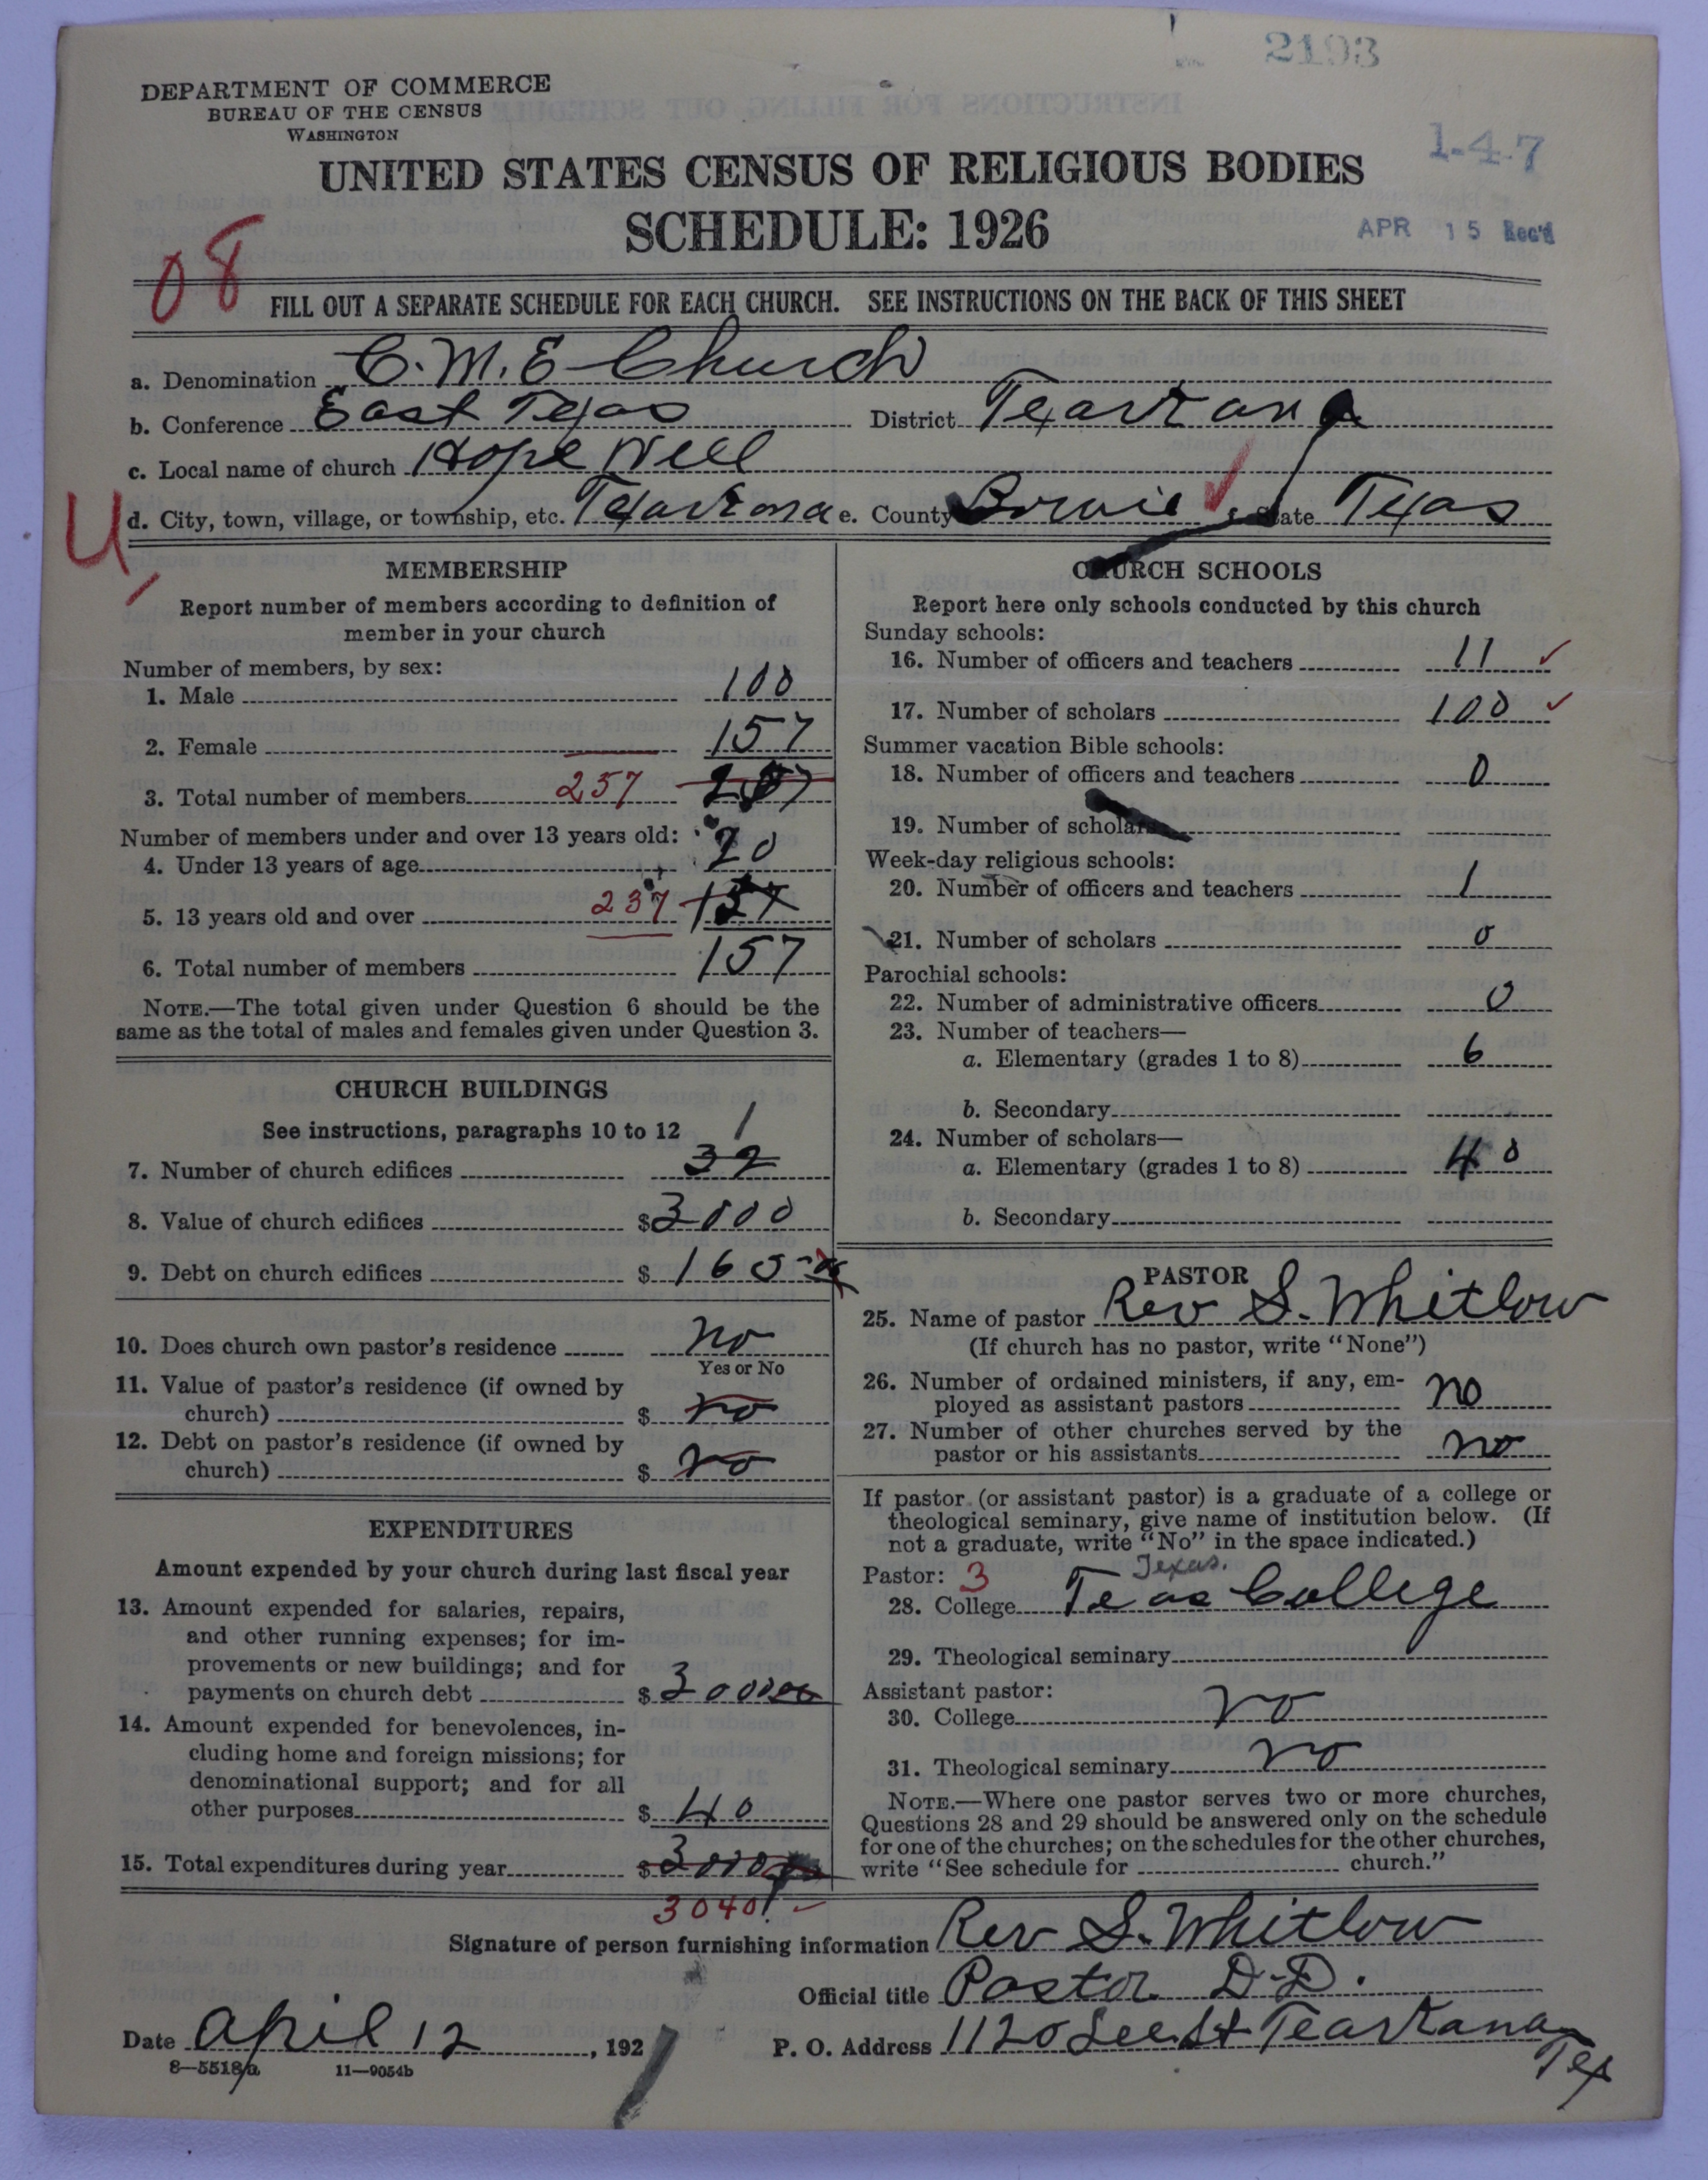 2193
DEPARTMENT OF COMMERCE
BUREAU OF THE CENSUS
WASHINGTON
1-4-7
UNITED STATES CENSUS OF RELIGIOUS BODIES
SCHEDULE: 1926
APR 15 Rec'd
08
FILL OUT A SEPARATE SCHEDULE FOR EACH CHURCH. SEE INSTRUCTIONS ON THE BACK OF THIS SHEET
a. Denomination C.M.E Church
b. Conference East Texas District Texarkana
c. Local name of church Hope Well
U d. City, town, village, or township, etc. Texarkana e. County Bowie State Texas
MEMBERSHIP
Report number of members according to definition of
member in your church
Number of members, by sex:
1. Male 100
2. Female 157
3. Total number of members 257
Number of members under and over 13 years old:
4. Under 13 years of age 20
5. 13 years old and over 237
6. Total number of members 157
NOTE.—The total given under Question 6 should be the
same as the total of males and females given under Question 3.
CHURCH BUILDINGS
See instructions, paragraphs 10 to 12 1
7. Number of church edifices 32
8. Value of church edifices $3000
9. Debt on church edifices $165
10. Does church own pastor's residence no
Yes or No
11. Value of pastor's residence (if owned by
church) $ no
12. Debt on pastor's residence (if owned by
church) $ no
EXPENDITURES
Amount expended by your church during last fiscal year
13. Amount expended for salaries, repairs,
and other running expenses; for im-
provements or new buildings; and for
payments on church debt $ 300000
14. Amount expended for benevolences, in-
cluding home and foreign missions; for
denominational support; and for all
other purposes $ 40
15. Total expenditures during year $
3040
CHURCH SCHOOLS
Report here only schools conducted by this church
Sunday schools:
16. Number of officers and teachers 11
17. Number of scholars 100
Summer vacation Bible schools:
18. Number of officers and teachers 0
19. Number of scholars
Week-day religious schools:
20. Number of officers and teachers 1
21. Number of scholars 0
Parochial schools:
22. Number of administrative officers 0
23. Number of teachers—
a. Elementary (grades 1 to 8) 6
b. Secondary
24. Number of scholars—
a. Elementary (grades 1 to 8) 40
b. Secondary
PASTOR
25. Name of pastor Rev S. Whitlow
(If church has no pastor, write "None")
26. Number of ordained ministers, if any, em-
ployed as assistant pastors no
27. Number of other churches served by the
pastor or his assistants no
If pastor (or assistant pastor) is a graduate of a college or
theological seminary, give name of institution below. (If
not a graduate, write "No" in the space indicated.)
Pastor: 3 Texas.
28. College Teas College
29. Theological seminary
Assistant pastor:
30. College no
31. Theological seminary no
NOTE.—Where one pastor serves two or more churches,
Questions 28 and 29 should be answered only on the schedule
for one of the churches; on the schedules for the other churches,
write "See schedule for church."
Signature of person furnishing information Rev S. Whitlow
Official title Pastor D.D.
Date April 12, 192
P. O. Address 1120 Lee St Tearkana
Tex
8—5518a 11—9054b